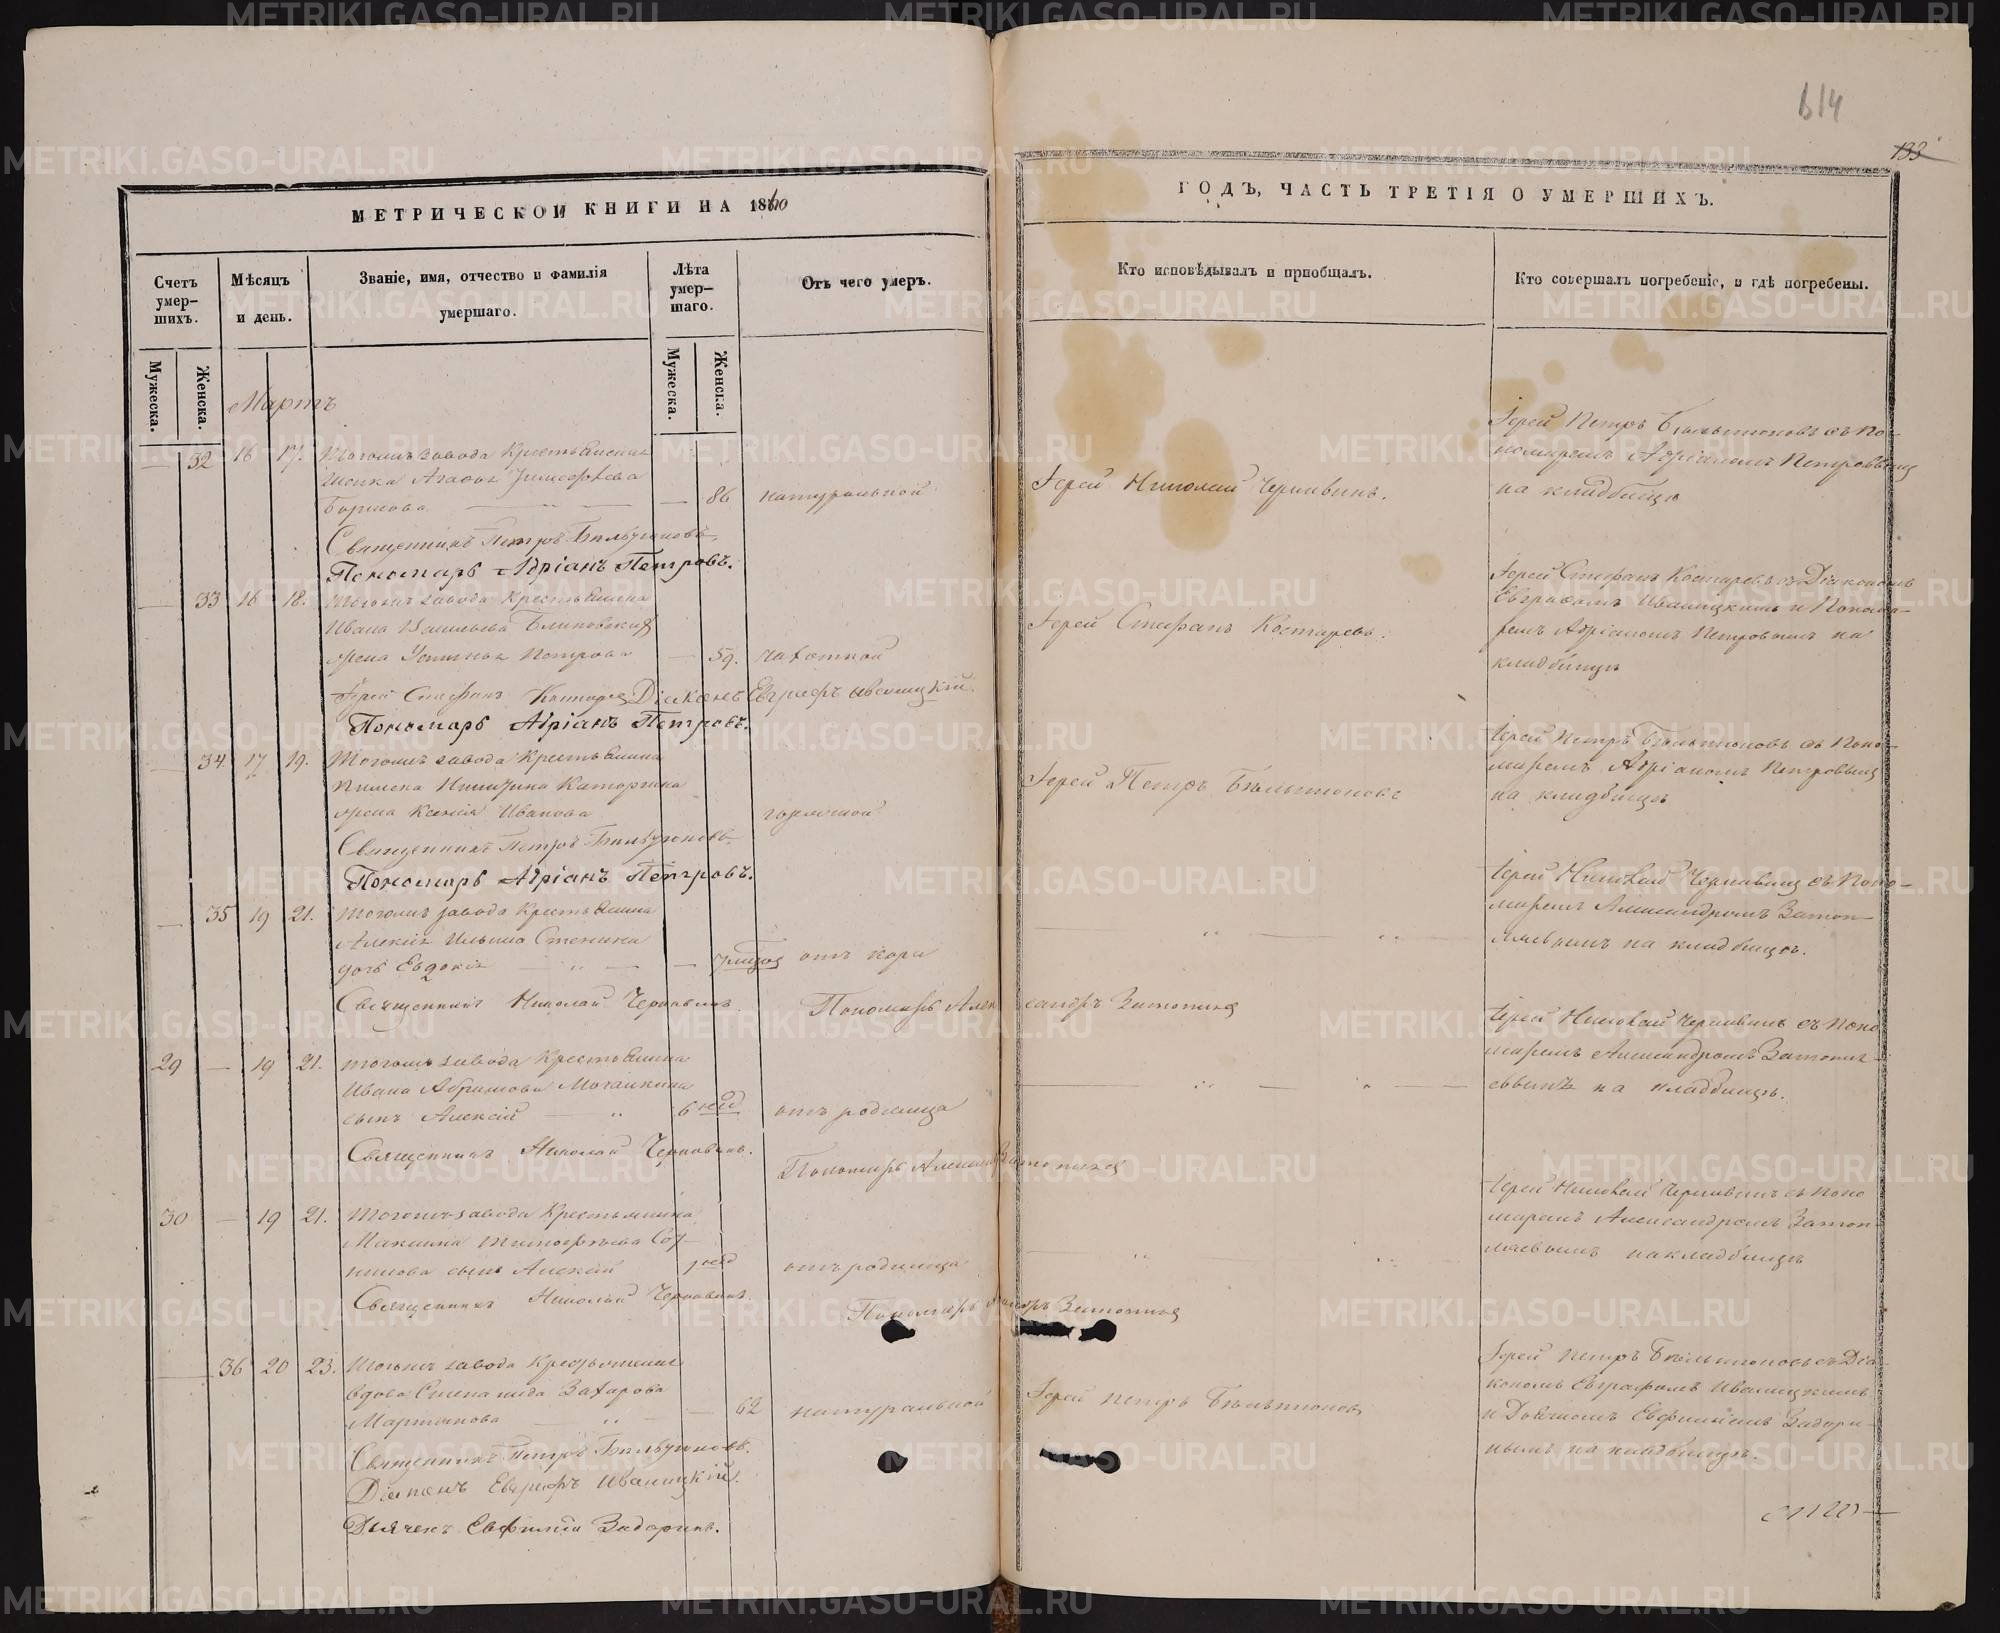 614
133
МЕТРИЧЕСКОЙ КНИГИ НА 1860
ГОДЪ, ЧАСТЬ ТРЕТІЯ О УМЕРШИХЪ.
Счетъ умер-шихъ.
Мѣсяцъ и день.
Званіе, имя, отчество и фамилія умершаго.
Лѣта умер-шаго.
Отъ чего умеръ.
Кто исповѣдывалъ и пріобщалъ.
Кто совершалъ погребеніе, и гдѣ погребены.
Мужеска.
Женска.
Мужеска.
Женска.
Мартъ
— 32 16 17. Тогожъ завода Крестьянская
Женка Агафья
— 86 натуральной
Іерей Николай Чернавинъ.
Іерей Петръ Бѣльтюковъ съ По-
номаремъ Адріаномъ Петровымъ
на кладбищѣ
Священникъ Петръ Бѣльтюковъ
Пономарь Адріанъ Петровъ.
— 33 16 18. Тогожъ завода Крестьянина
Ивана Васильева
жена Устинья Петрова — 59. чахоткой
Іерей Стефанъ Костаревъ.
Іерей Стефанъ Костаревъ съ Діакономъ
Евграфомъ Иваницкимъ и Понома-
ремъ Адріаномъ Петровымъ на
кладбищѣ
Іерей Стефанъ Костаревъ Діаконъ Евграфъ Иваницкій.
Пономарь Адріанъ Петровъ.
— 34 17 19. Тогожъ завода Крестьянина
жена Ксенія Иванова горячкой
Іерей Петръ Бѣльтюковъ
Іерей Петръ Бѣльтюковъ съ Поно-
маремъ Адріаномъ Петровымъ
на кладбищѣ
Священникъ Петръ Бѣльтюковъ
Пономарь Адріанъ Петровъ.
— 35 19 21. Тогожъ завода Крестьянина
Алексія Ильина Стенина
дочь Евдокія — 7 отъ кори
Іерей Николай Чернавинъ съ Поно-
маремъ Александромъ
на кладбищѣ.
Священникъ Николай Чернавинъ
Пономарь Александръ
29 — 19 21. Тогожъ завода Крестьянина
Ивана Абрамова
сынъ Алексій 6 нед отъ родимца
Іерей Николай Чернавинъ съ Поно
маремъ Александромъ
на кладбищѣ.
Священникъ Николай Чернавинъ.
Пономарь
30 — 19 21. Тогожъ завода Крестьянина
Максима Тимофѣева
сынъ Алексій 1 нед отъ родимца
Іерей Николай Чернавинъ съ Поно
маремъ Александромъ
на кладбищѣ
Священникъ Николай Чернавинъ.
Пономарь
— 36 20 23. Тогожъ завода Крестьянская
вдова Степанида Захарова
Мартынова — 62 натуральной
Іерей Петръ Бѣльтюковъ
Іерей Петръ Бѣльтюковъ съ Діа-
кономъ Евграфомъ Иваницкимъ
и Дьячкомъ Евфиміемъ Задори-
нымъ на кладбищѣ.
Священникъ Петръ Бѣльтюковъ.
Діаконъ Евграфъ Иваницкій.
Дьячекъ Евфимій Задоринъ.
METRIKI.GASO-URAL.RU